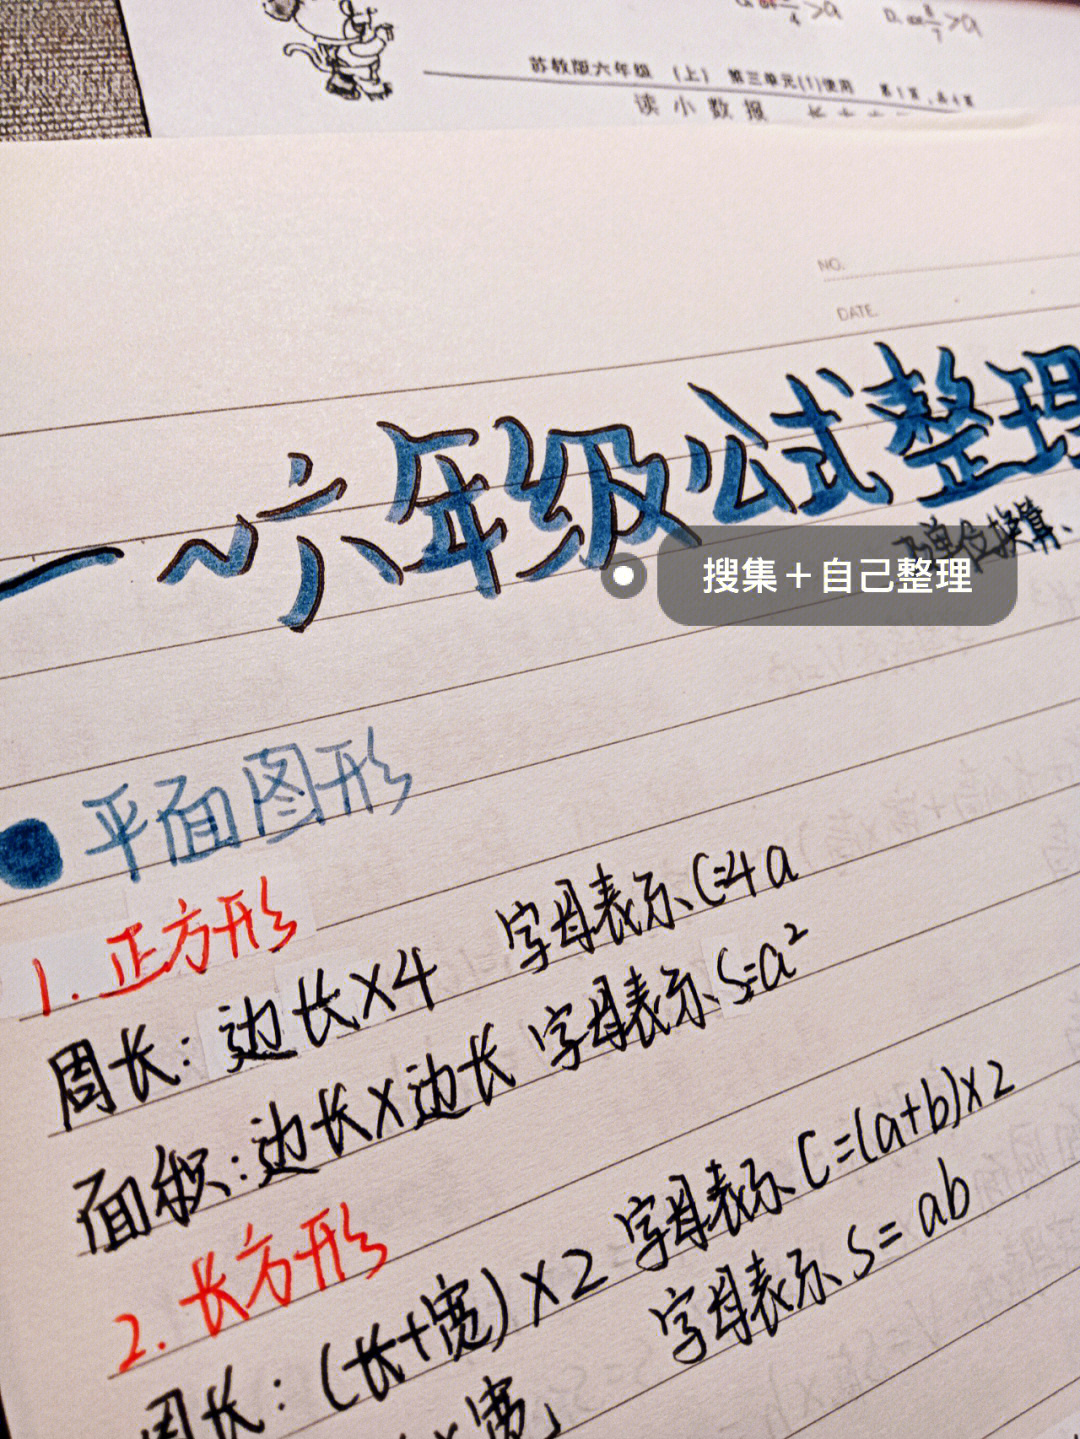 >a D. a×8/7>a
苏教版六年级 (上) 第三单元(1)使用 第1页，共4页
读小数报
NO.
DATE.
一~六年级公式整理
及单位换算、
搜集+自己整理
平面图形
1. 正方形
周长: 边长×4 字母表示C=4a
面积: 边长×边长 字母表示S=a²
2. 长方形
周长: (长+宽)×2 字母表示C=(a+b)×2
×宽 字母表示S=ab